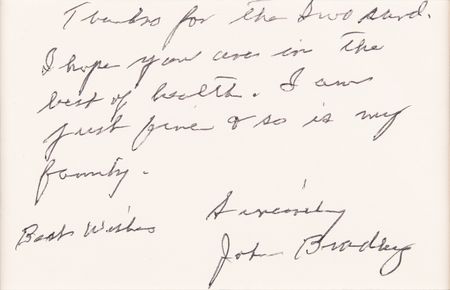 Thanks for the Iwo sand.
I hope you are in the
best of health. I am
just fine & so is my
family.
Best Wishes
Sincerely
John Bradley